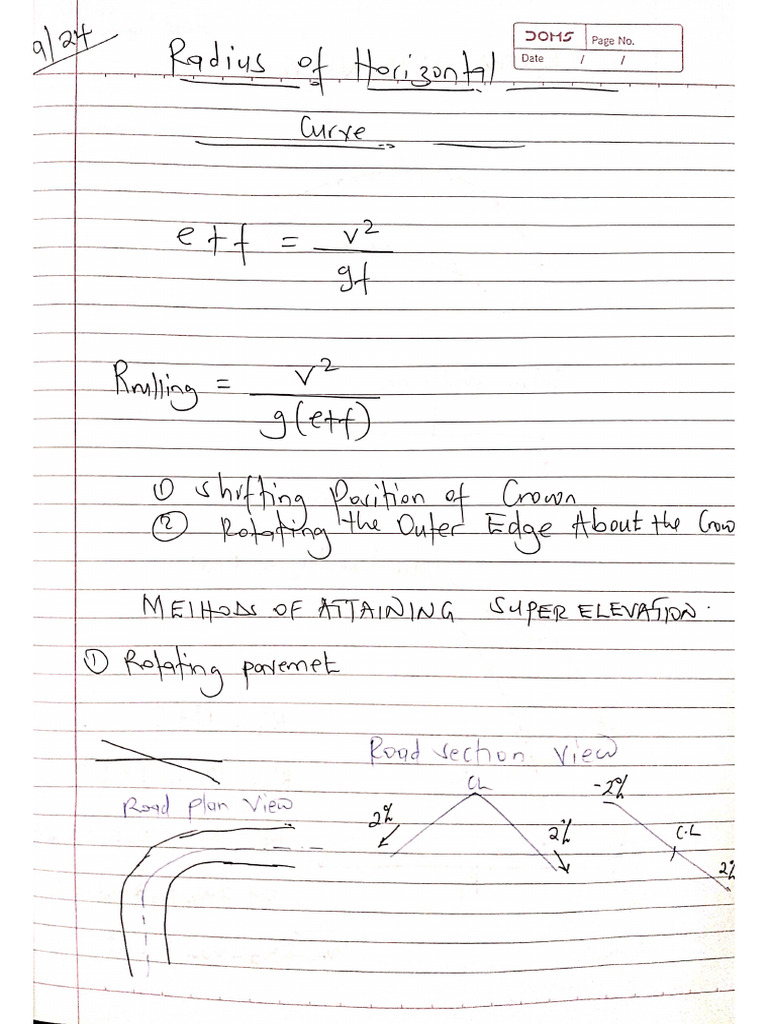 9/24
DOMS Page No.
Date / /
Radius of Horizontal
Curve
e + f = v²
gf
Rrulling = v²
g(e+f)
① Shifting Position of Crown
② Rotating the Outer Edge About the Crow
METHODS OF ATTAINING SUPER ELEVATION.
① Rotating pavemet
Road section view
Road plan view
CL
2%
2%
-2%
C.L
2%